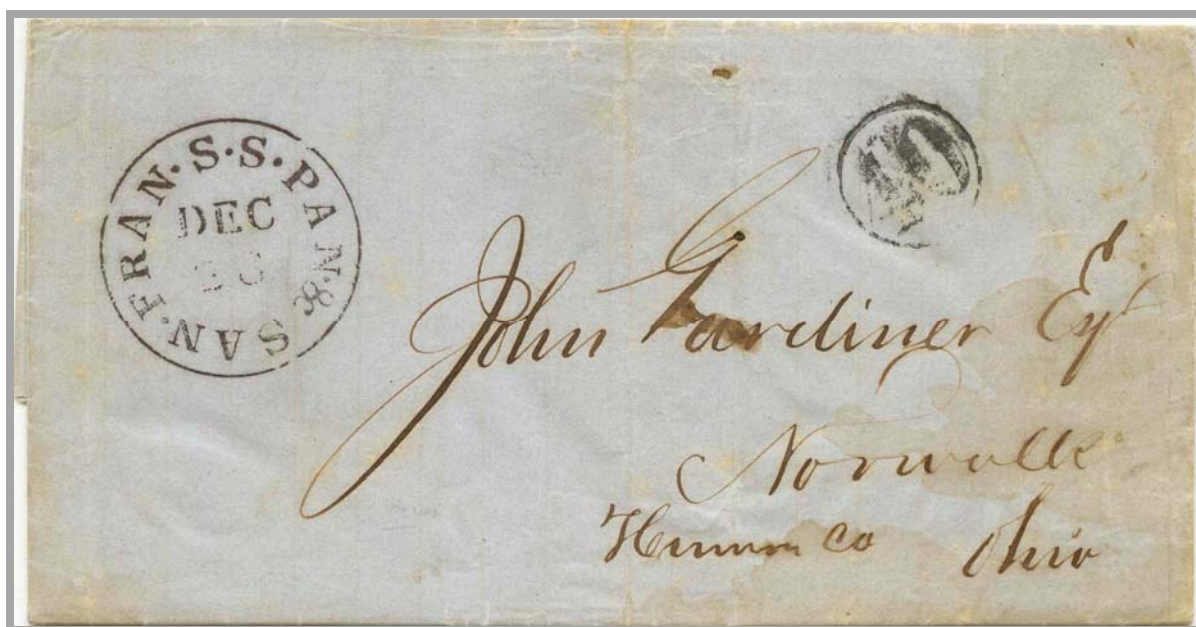 PAN. & SAN. FRAN. S.S.
DEC
40
John Gardiner Esqr
Norwalk
Huron Co Ohio